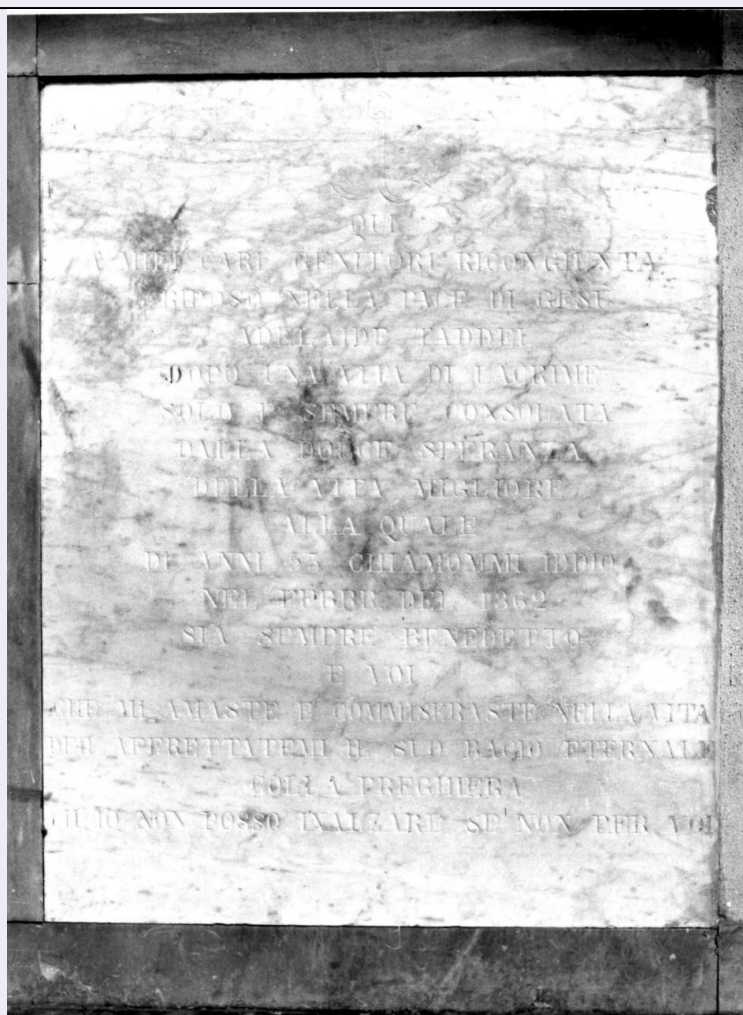 QUI
A MIEI CARI GENITORI RICONGIUNTA
RIPOSO NELLA PACE DI GESÙ
ADELAIDE TADDEI
DOPO UNA VITA DI LACRIME
SOLO E SEMPRE CONSOLATA
DALLA DOLCE SPERANZA
DELLA VITA MIGLIORE
ALLA QUALE
DI ANNI 53 CHIAMOMMI IDDIO
NEL FEBBR DEL 1862
SIA SEMPRE BENEDETTO
E VOI
CHE MI AMASTE E COMMISERASTE NELLA VITA
DEH AFFRETTATEMI IL SUO BACIO ETERNALE
COLLA PREGHIERA
CH IO NON POSSO INALZARE SE' NON PER VOI